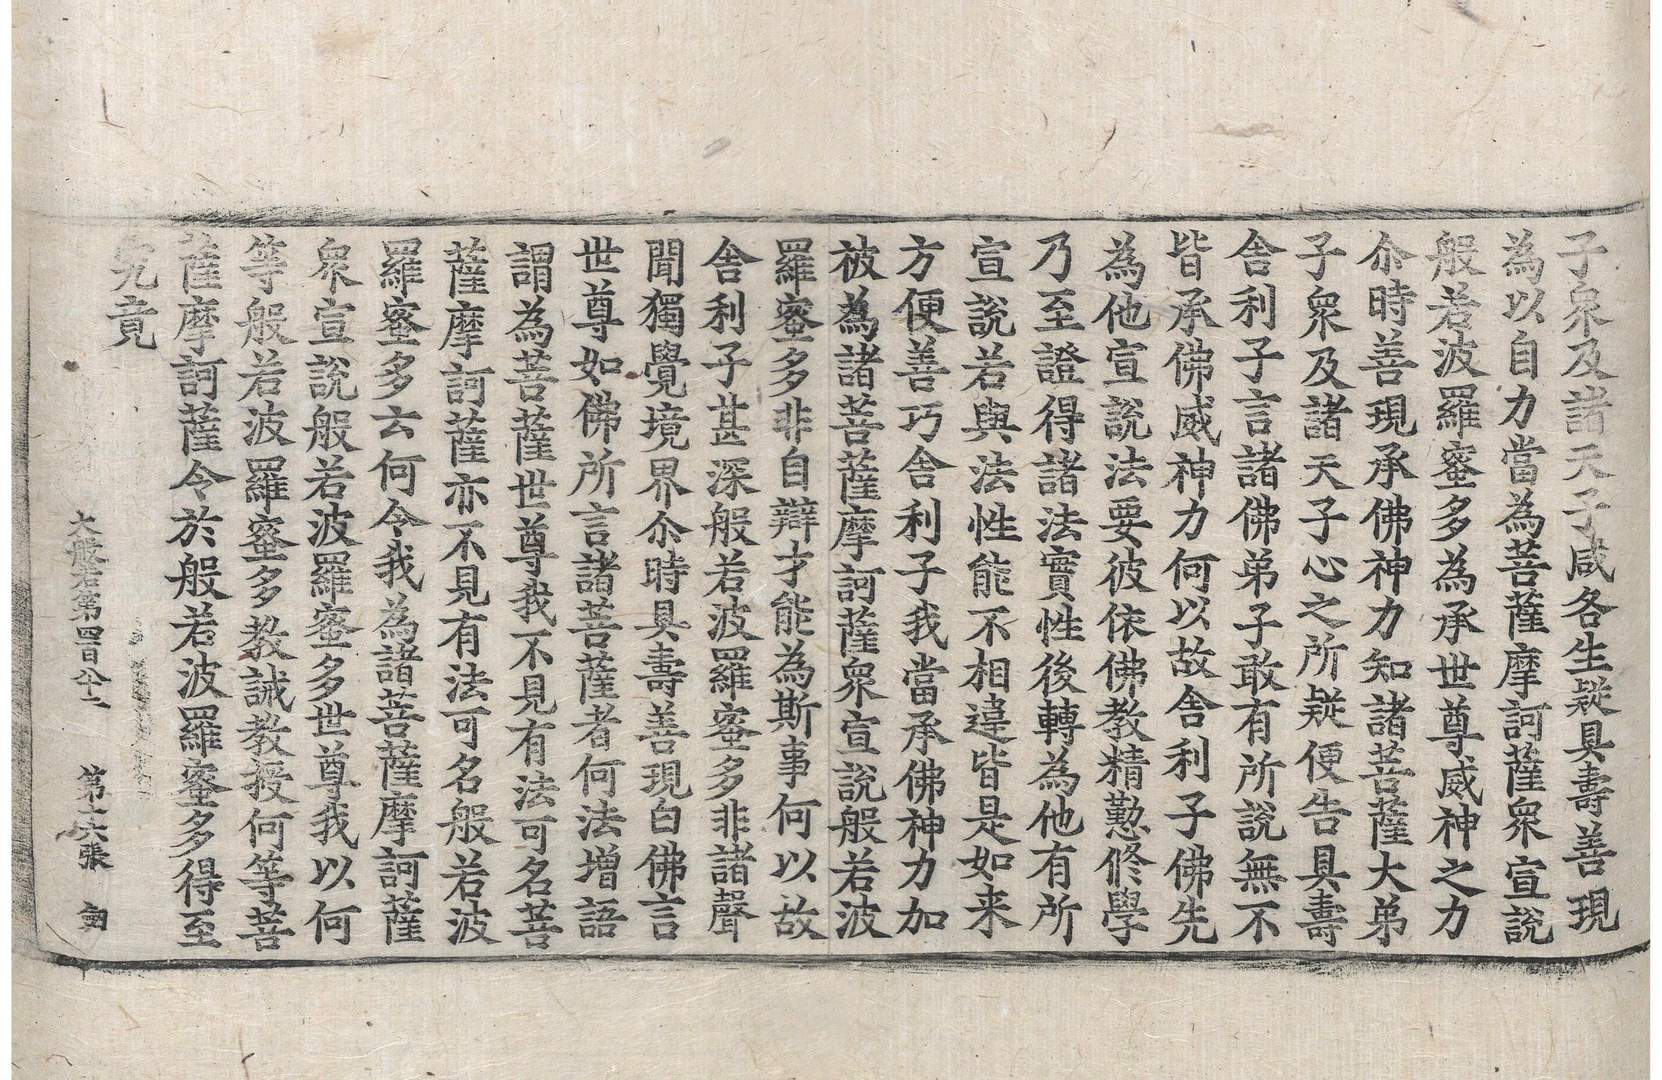 子衆及諸天子咸各生疑具壽善現
為以自力當為菩薩摩訶薩衆宣說
般若波羅蜜多為承世尊威神之力
尒時善現承佛神力知諸菩薩大弟
子衆及諸天子心之所疑便告具壽
舍利子言諸佛弟子敢有所說無不
皆承佛威神力何以故舍利子佛先
為他宣說法要彼依佛教精懃修學
乃至證得諸法實性後轉為他有所
宣說若與法性能不相違皆是如来
方便善巧舍利子我當承佛神力加
被為諸菩薩摩訶薩衆宣說般若波
羅蜜多非自辯才能為斯事何以故
舍利子甚深般若波羅蜜多非諸聲
聞獨覺境界尒時具壽善現白佛言
世尊如佛所言諸菩薩者何法增語
謂為菩薩世尊我不見有法可名菩
薩摩訶薩亦不見有法可名般若波
羅蜜多云何令我為諸菩薩摩訶薩
衆宣說般若波羅蜜多世尊我以何
等般若波羅蜜多教誡教授何等菩
薩摩訶薩令於般若波羅蜜多得至
究竟
大般若第四百八十二 第六張